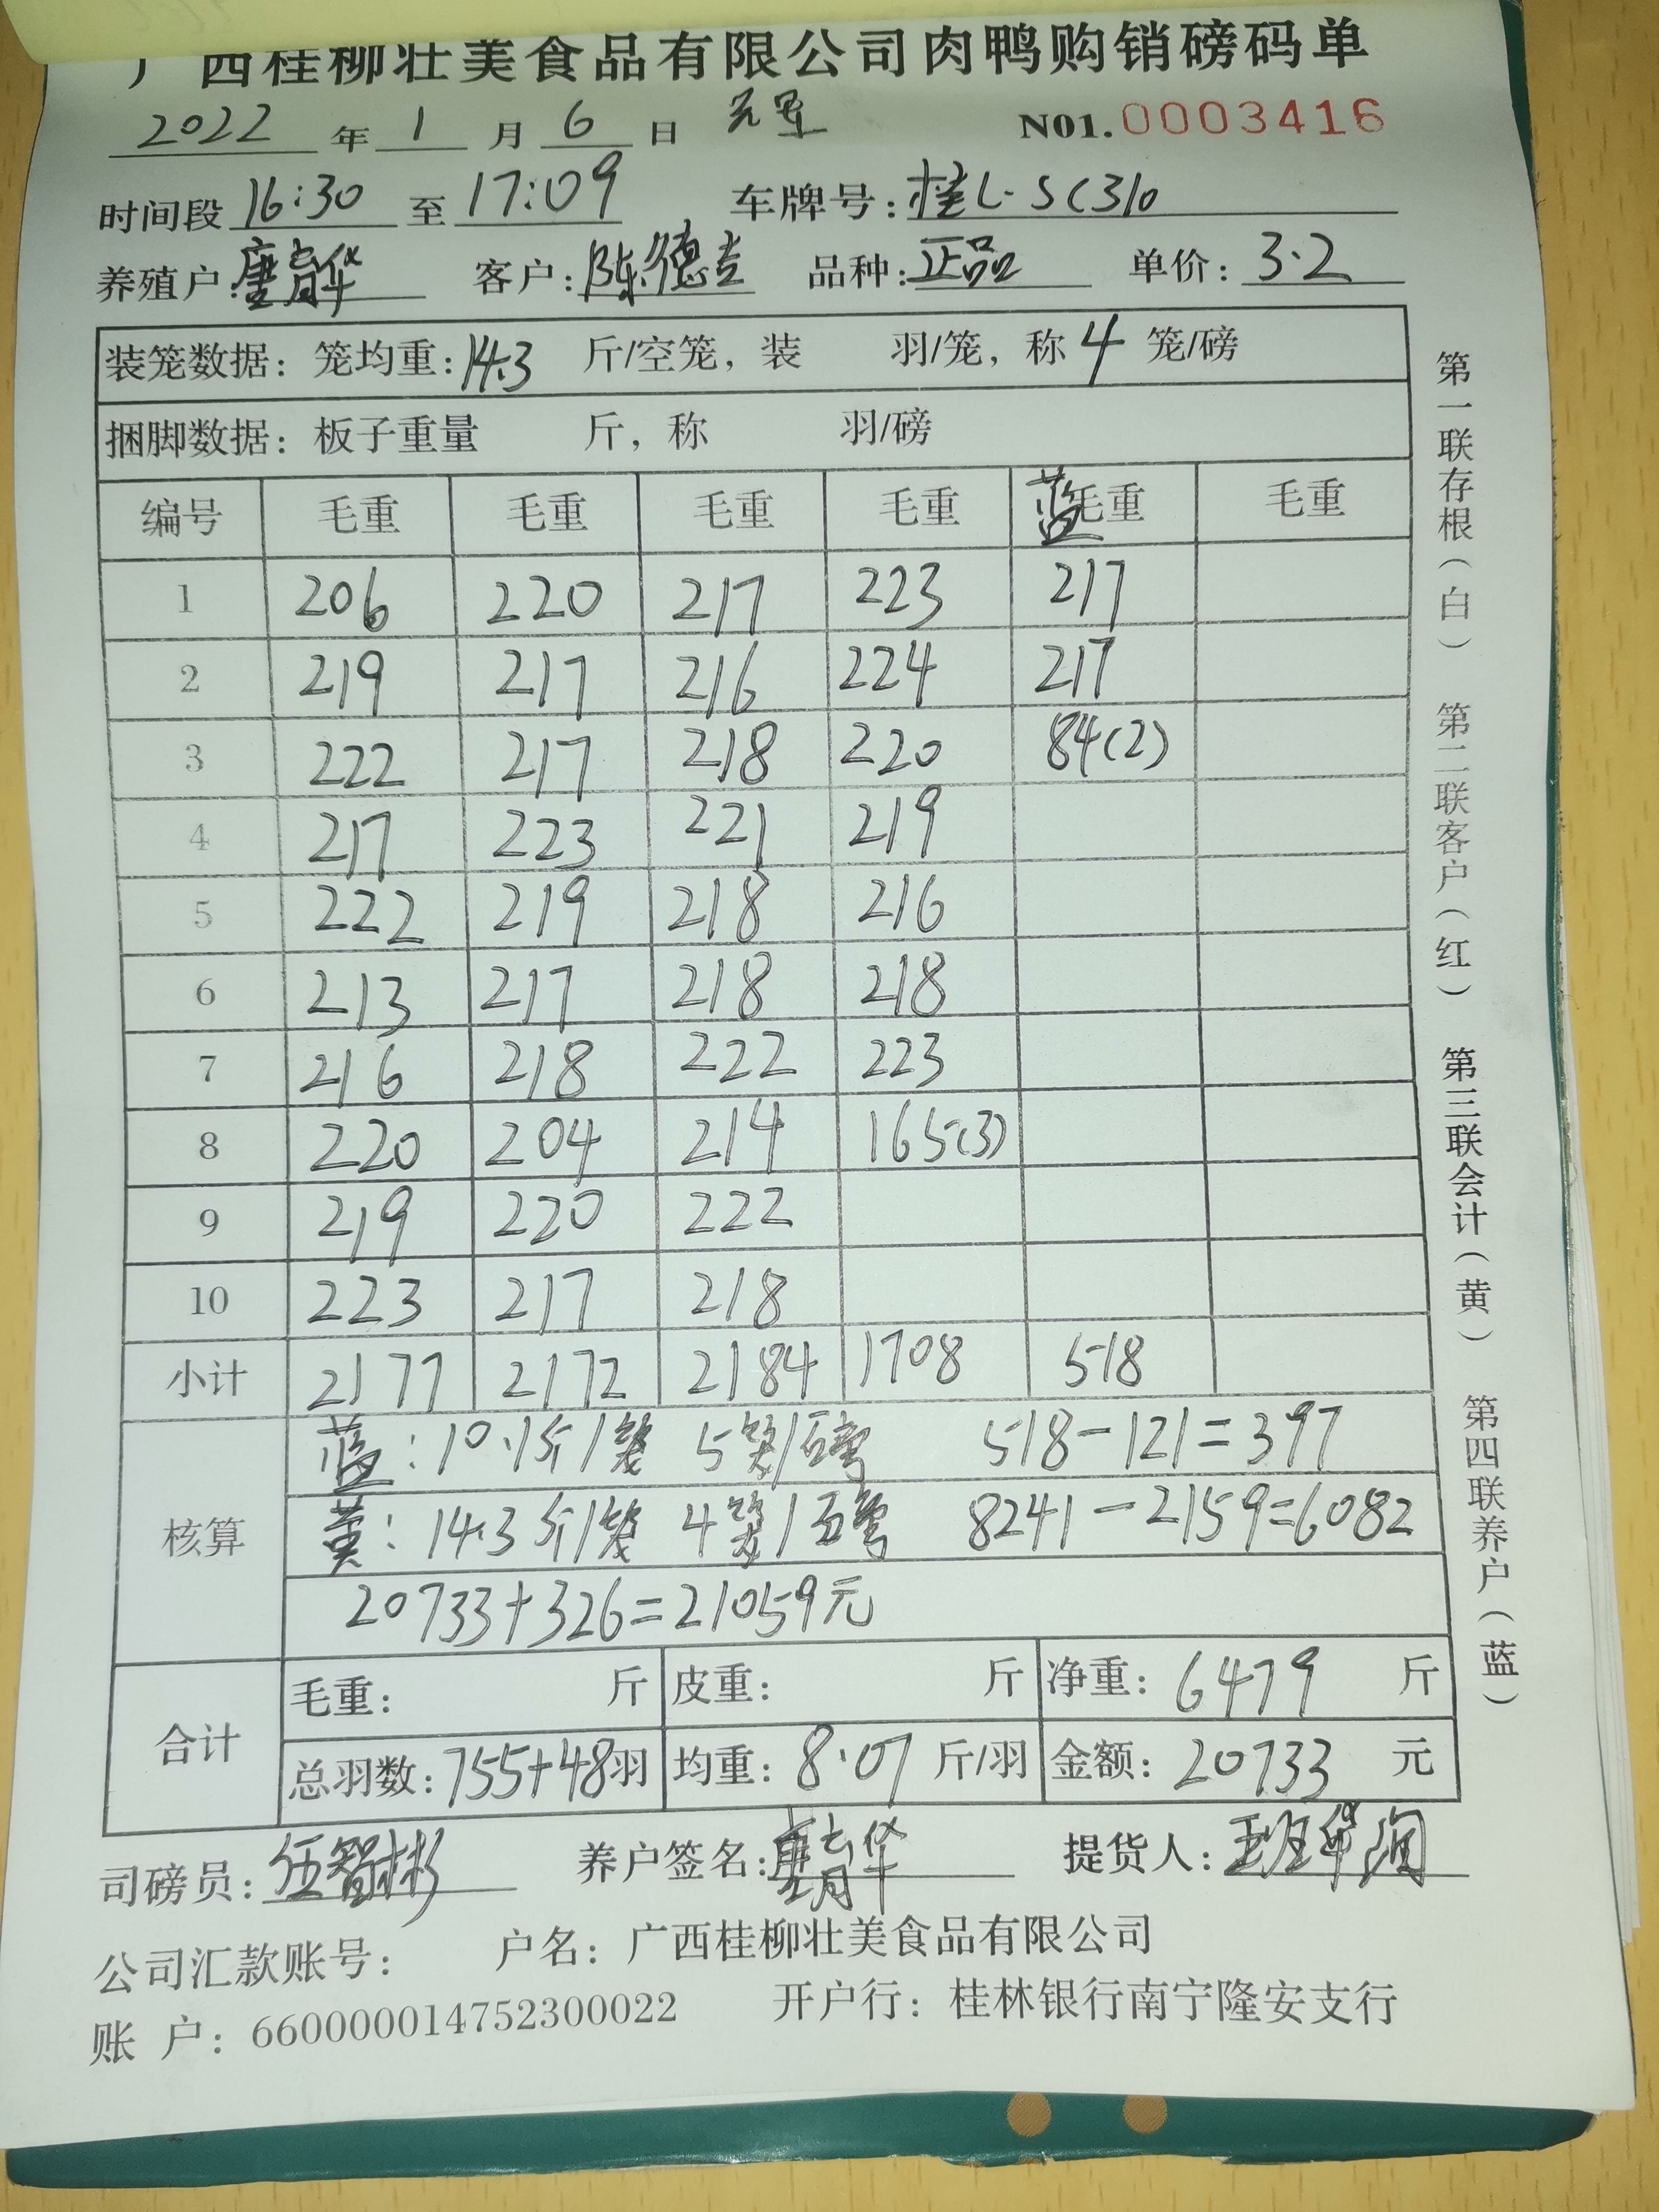 广西桂柳壮美食品有限公司肉鸭购销磅码单
2022 年 1 月 6 日 N01.0003416
时间段 16:30 至 17:09 车牌号: 桂L·SC310
养殖户: 唐育华 客户: 陈德 品种: 正品 单价: 3.2
装笼数据: 笼均重: 14.3 斤/空笼, 装 羽/笼, 称 4 笼/磅
捆脚数据: 板子重量 斤, 称 羽/磅
编号 毛重 毛重 毛重 毛重 蓝 毛重 毛重
1 206 220 217 223 217
2 219 217 216 224 217
3 222 217 218 220 84(2)
4 217 223 221 219
5 222 219 218 216
6 213 217 218 218
7 216 218 222 223
8 220 204 214 165(3)
9 219 220 222
10 223 217 218
小计 2177 2172 2184 1708 518
蓝: 10.1斤/笼 5笼/磅 518-121=397
核算 黄: 14.3斤/笼 4笼/磅 8241-2159=6082
20733+326=21059元
合计 毛重: 斤 皮重: 斤 净重: 6479 斤
总羽数: 755+48羽 均重: 8.07 斤/羽 金额: 20733 元
司磅员: 伍智彬 养户签名: 唐育华 提货人:
公司汇款账号: 户名: 广西桂柳壮美食品有限公司
账 户: 660000014752300022 开户行: 桂林银行南宁隆安支行
第一联存根(白) 第二联客户(红) 第三联会计(黄) 第四联养户(蓝)